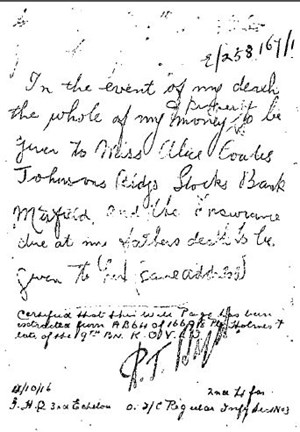 E/258167/1
In the event of my death
the whole of my money to be
given to Miss Alice Coates
Johnsons Bldgs Stocks Bank
Mirfield, and the Insurance
due at my fathers death to be
given to her (same address)
Certified that this Will Page has been
extracted from AB64 of Pte Holmes
late of the 9th BN. K.O.Y.L.I.
2nd Lt for
G.H.Q 3rd Echelon o. i/c Regular Inf Sec No 3